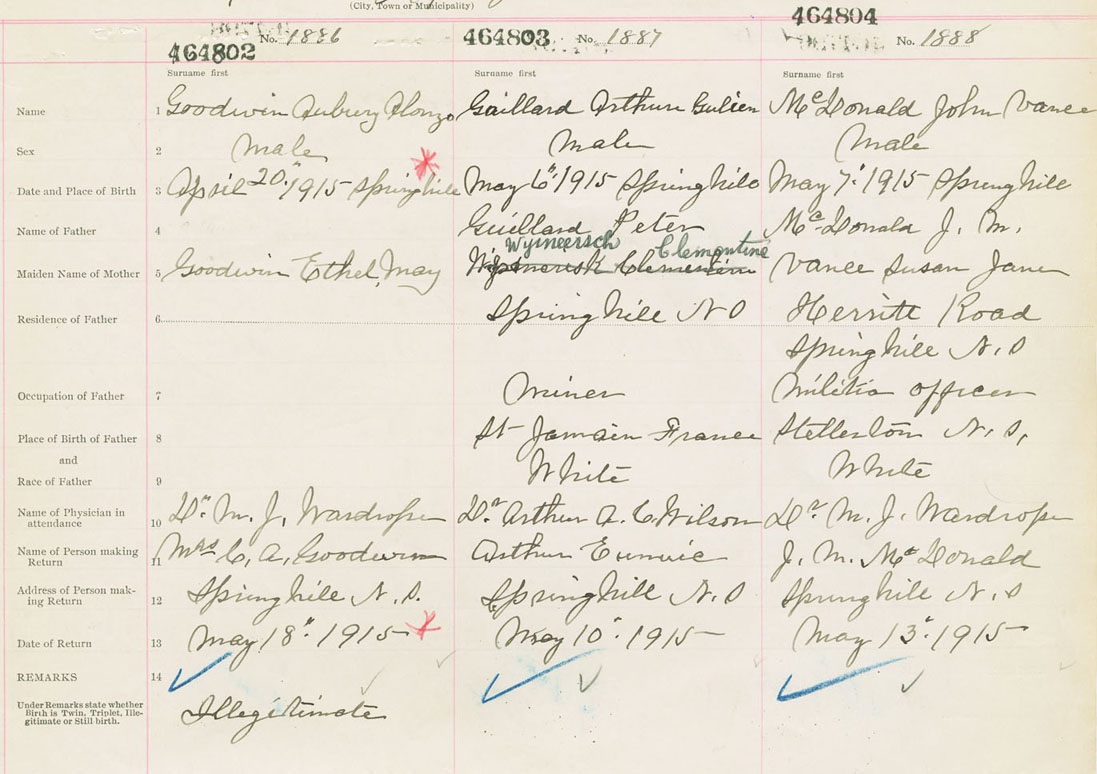 (City, Town or Municipality)
464802 No. 1886
464803 No. 1887
464804 No. 1888
Surname first Surname first Surname first
Name 1 Goodwin Aubury Alonzo Guillard Arthur Gulien McDonald John Vance
Sex 2 Male Male Male
Date and Place of Birth 3 April 20" 1915 Springhill May 6" 1915 Springhill May 7" 1915 Springhill
Name of Father 4 Guillard Peter McDonald J. M.
Wymeersch Clemontine
Maiden Name of Mother 5 Goodwin Ethel May Clementine Vance Susan Jane
Residence of Father 6 Springhill N S Herritt Road
Springhill N. S
Occupation of Father 7 Miner Militia officer
Place of Birth of Father 8 St Jamain France Stellerton N. S,
and
Race of Father 9 White White
Name of Physician in
attendance 10 Dr. M. J. Wardrope Dr Arthur A. C. Wilson Dr M. J. Wardrope
Name of Person making
Return 11 Mrs C, A, Goodwin Arthur J. M. McDonald
Address of Person mak-
ing Return 12 Springhill N. S. Springhill N. S Springhill N. S
Date of Return 13 May 18" 1915 May 10" 1915 May 13" 1915
REMARKS 14
Under Remarks state whether
Birth is Twin, Triplet, Ille-
gitimate or Still birth.
Illegitimate